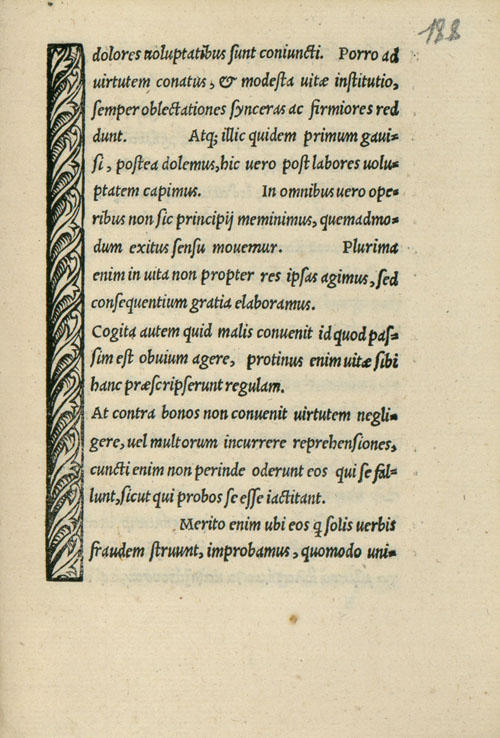 188
dolores uoluptatibus sunt coniuncti. Porro ad
uirtutem conatus, & modesta uitæ institutio,
semper oblectationes synceras ac firmiores red
dunt. Atq; illic quidem primum gaui-
si, postea dolemus, hic uero post labores uolu-
ptatem capimus. In omnibus uero ope-
ribus non sic principij meminimus, quemadmo-
dum exitus sensu mouemur. Plurima
enim in uita non propter res ipsas agimus, sed
consequentium gratia elaboramus.
Cogita autem quid malis conuenit id quod pas-
sim est obuium agere, protinus enim uitæ sibi
hanc præscripserunt regulam.
At contra bonos non conuenit uirtutem negli-
gere, uel multorum incurrere reprehensiones,
cuncti enim non perinde oderunt eos qui se fal-
lunt, sicut qui probos se esse iactitant.
Merito enim ubi eos ꝗ solis uerbis
fraudem struunt, improbamus, quomodo uni-